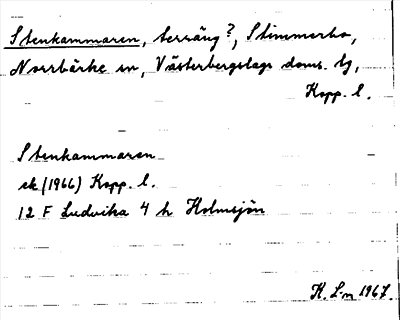 Stenkammaren, terräng?, Stimmerbo,
Norrbärke sn, Västerbergslags doms. tg,
Kopp. l.
Stenkammaren
ek (1966) Kopp. l.
12 F Ludvika 4 h Holmsjön
K. Lm 1967.